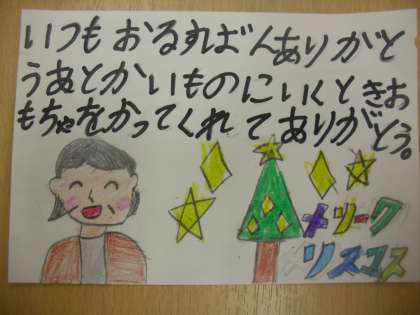 いつもおるすばんありがと
うあとかいものにいくときお
もちゃをかってくれてありがとう。
メリーク
リスコス